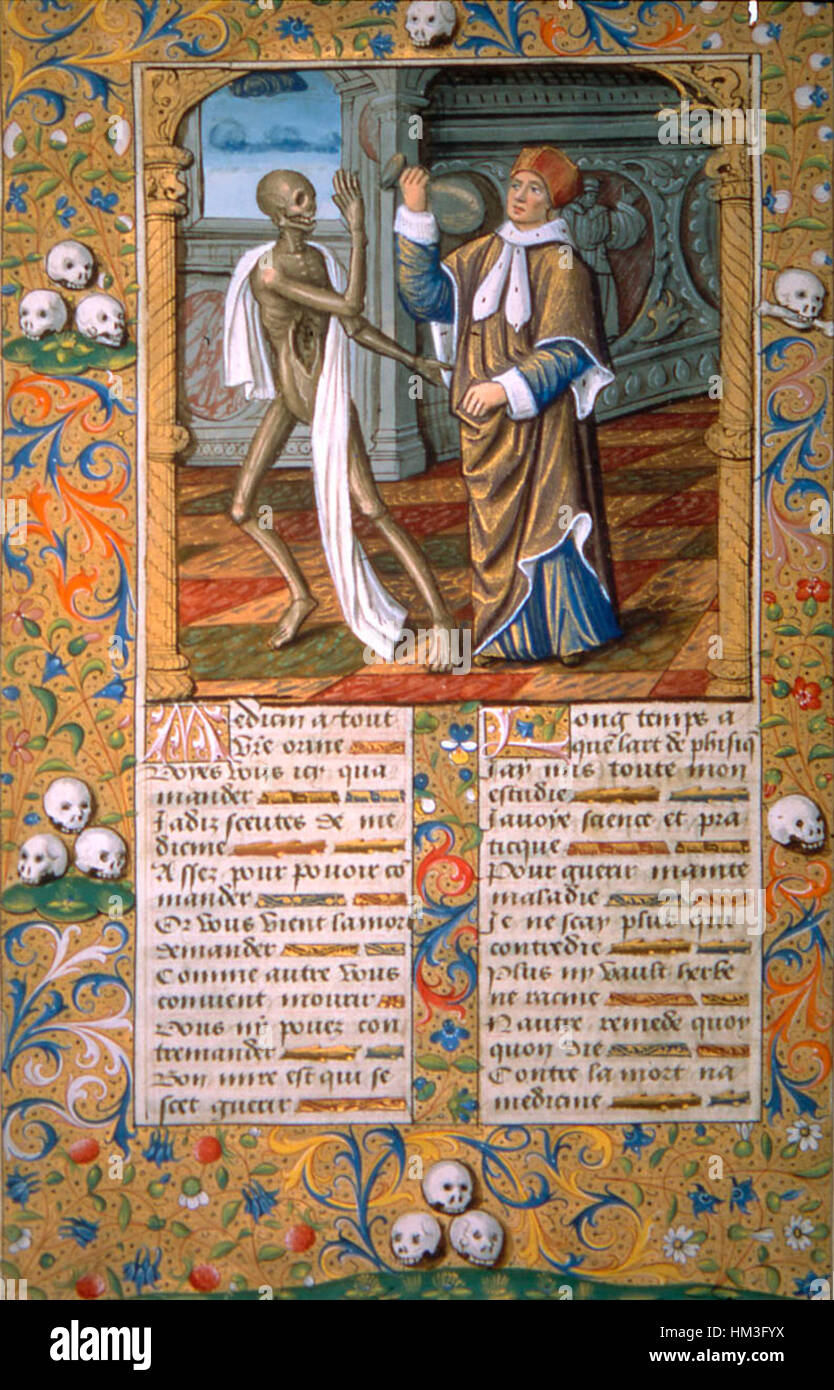 Medicin a tout
Vre orine
Voyes vous icy qua
mander
Jadiz sceutes de me
dicine
Assez pour pouoir cō
mander
Or vous vient la mort
demander
Comme autre vous
convient mourir
Vous ny pouez con
tremander
Bon mire est qui se
scet guerir
Long temps a
que lart de phisiq
Jay mis toute mon
estudie
Javoye science et pra
ticque
Pour guerir mainte
maladie
Je ne scay plus que
contredie
Plus ny vault herbe
ne racine
Nautre remede quoy
quon die
Contre la mort na
medicine
alamy
alamy
Image ID: HM3FYX
www.alamy.com